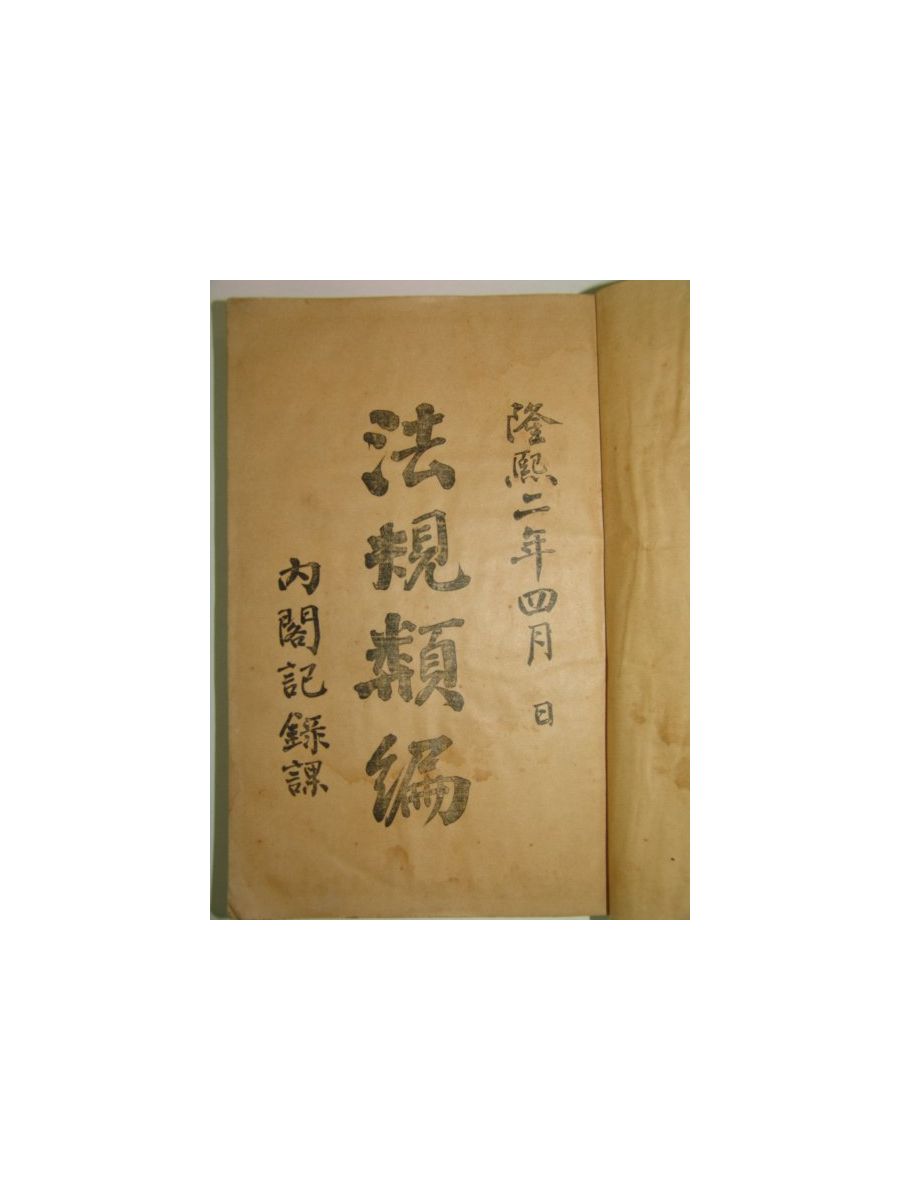 隆熙二年四月 日
法規類編
內閣記錄課